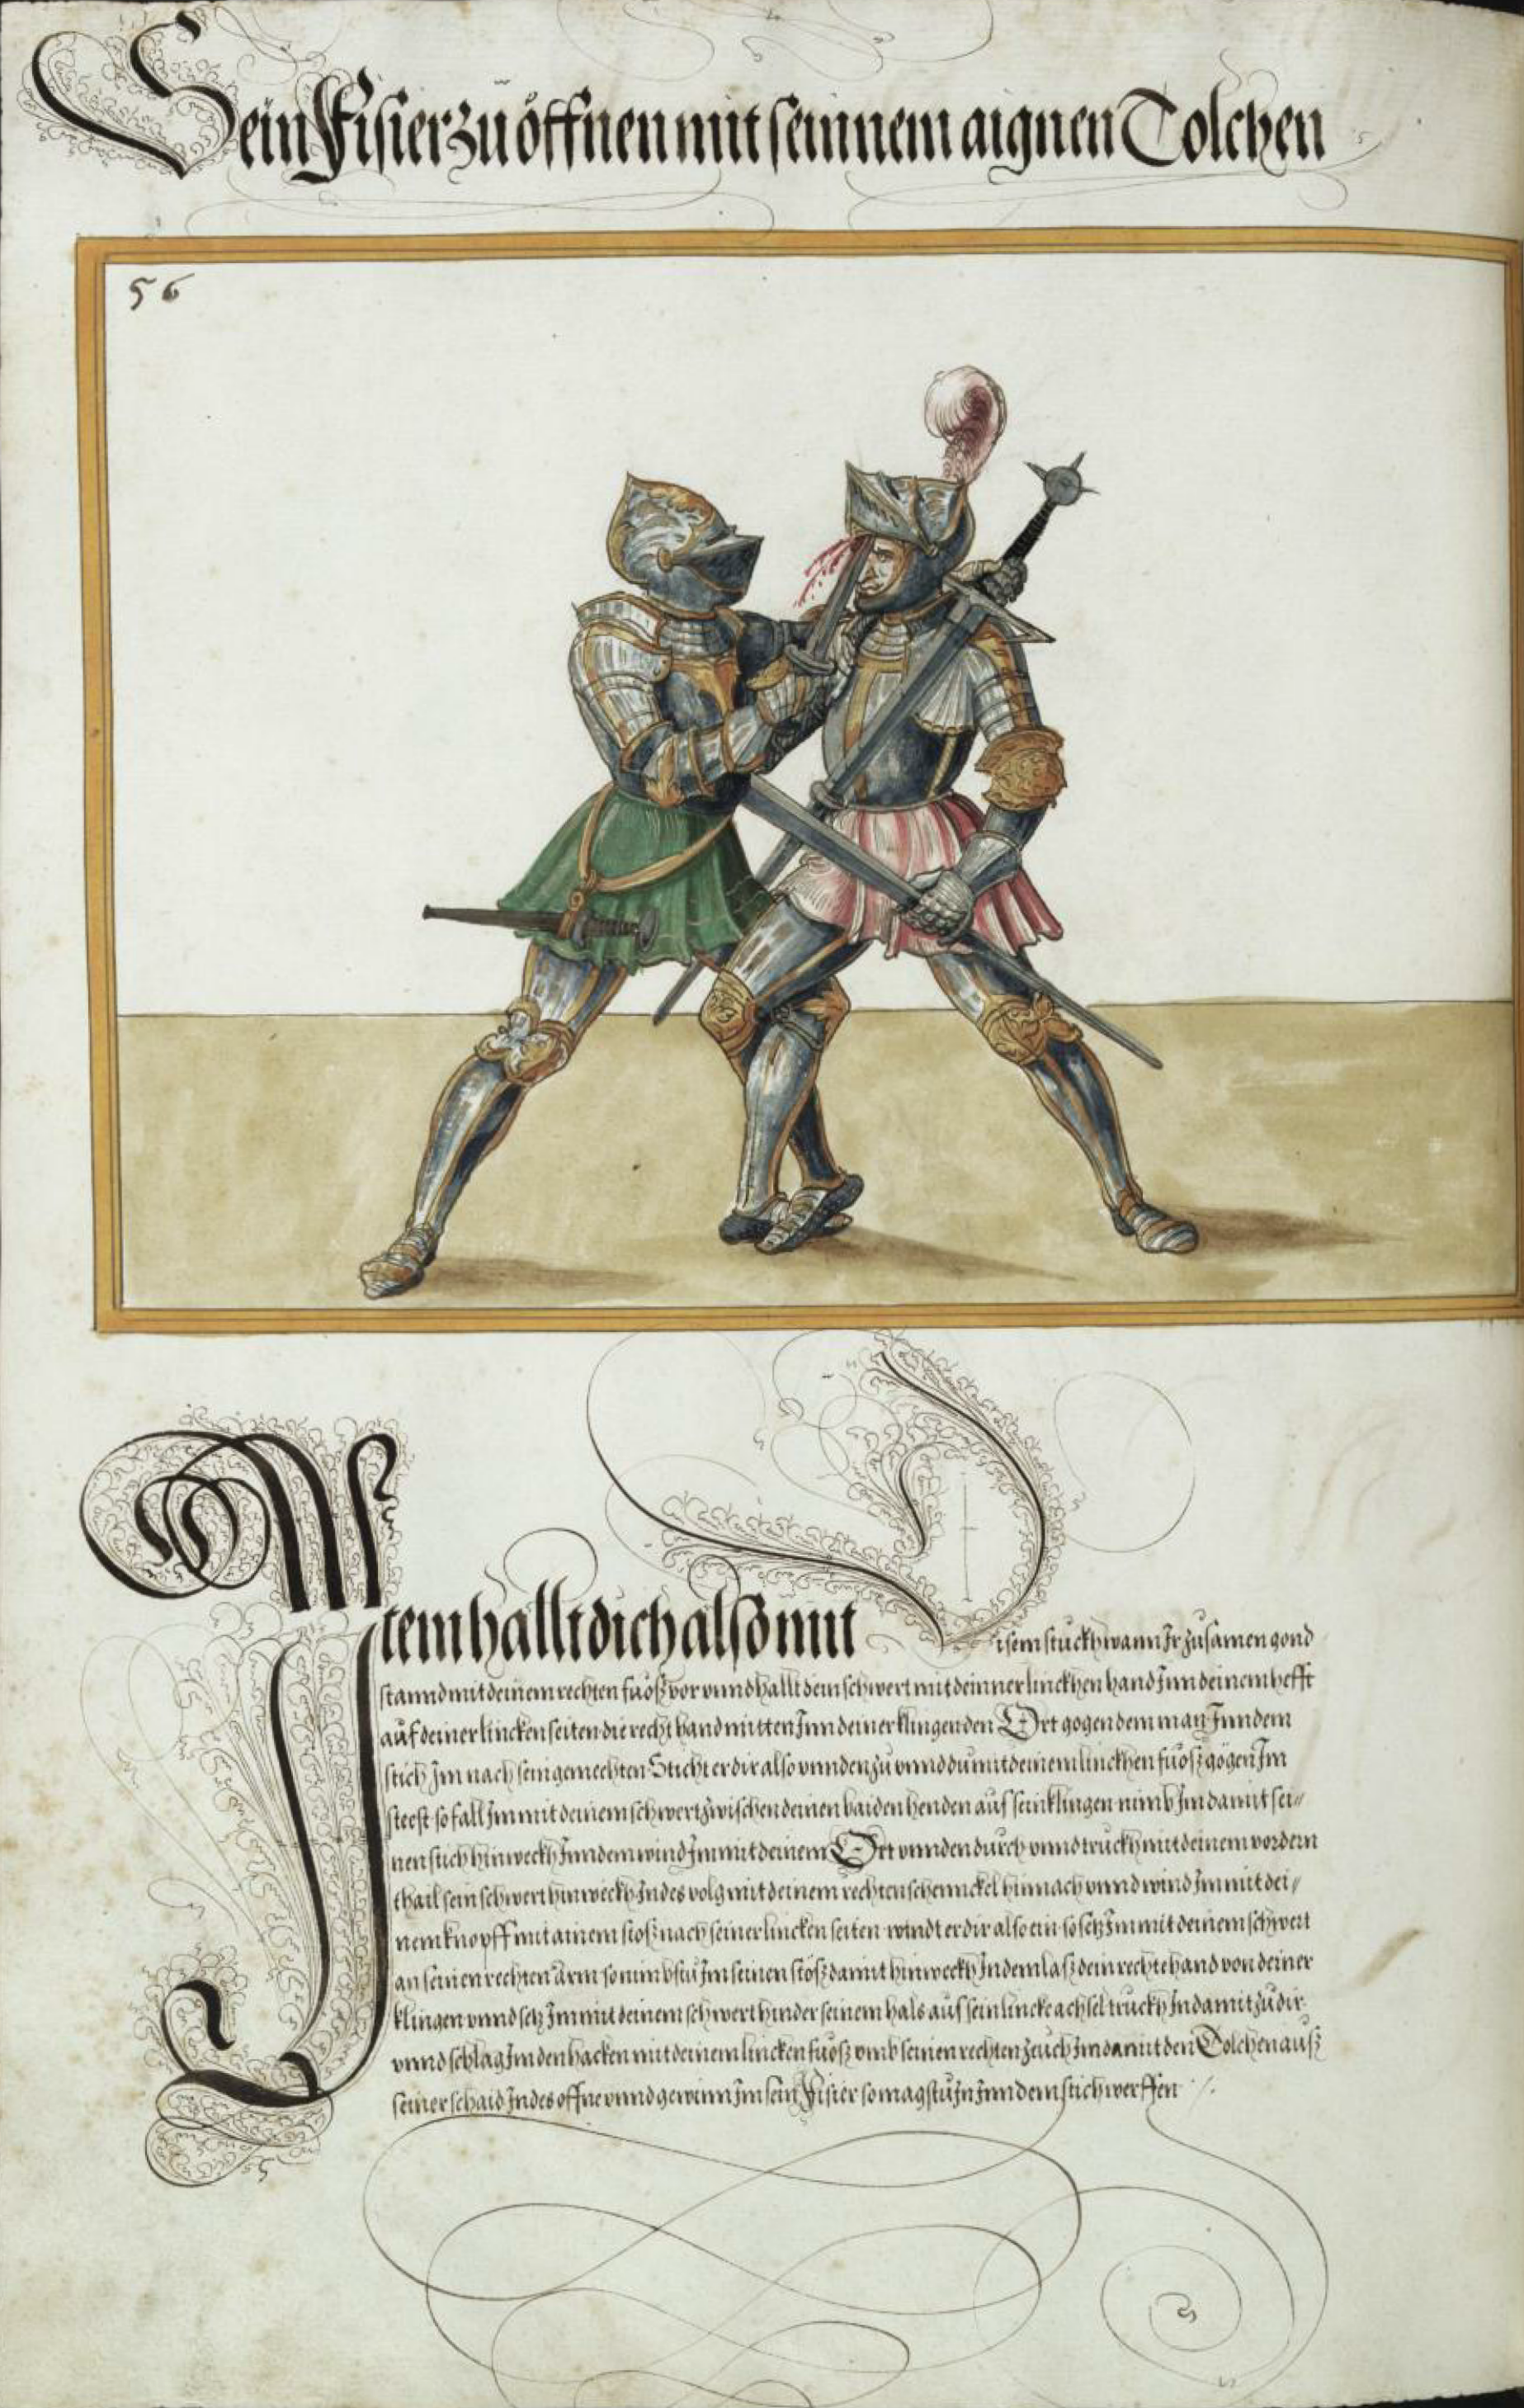 Sein Fisier zu öffnen mit seinnem aignen Tolchen
56
Item hallt dich also mit disem stuckh wann Jr zusamen gond
stannd mit deinem rechten fuoß vor vnnd hallt dein schwert mit deinner linckhen hand Jnn deinem hefft
auf deiner lincken seiten die recht hand mitten Jnn deiner klingen den Ort gogen dem man Jnn dem
stich Jm nach sein gemechten Sticht er dir also vnnden zu vnnd du mit deinem linckhen fuoß gögen Jm
steest so fall Jm mit deinem schwert zwischen deinen baiden henden auf sein klingen nimb Jm damit sei„
nen stich hinweckh Jnn dem wind Jm mit deinem Ort vnnden durch vnnd truckh mit deinem vordern
thail sein schwert hinweckh Jndes volg mit deinem rechten schennckel hinnach vnnd wind Jm mit dei„
nem knopff mit ainem stoß nach seiner lincken seiten windt er dir also ein so setz Jm mit deinem schwert
an seinen rechten arm so nimbstu Jm seinen stöß damit hinweckh Jn dem laß dein rechte hand von deiner
klingen vnnd setz Jm mit deinem schwert hinder seinem hals auf sein lincke achsel truckh Jn damit zu dir
vnnd schlag Jm den hacken mit deinem lincken fuoß vmb seinen rechten zeuch Jm damit den Dolchen auß
seiner schaid Jndes offne vnnd gewinn Jm sein Fisier so magstu Jn Jnn dem stich werffen ·/.